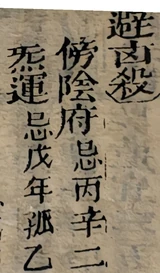 避凶殺
傍陰府忌丙辛二
炁運忌戊年孤乙